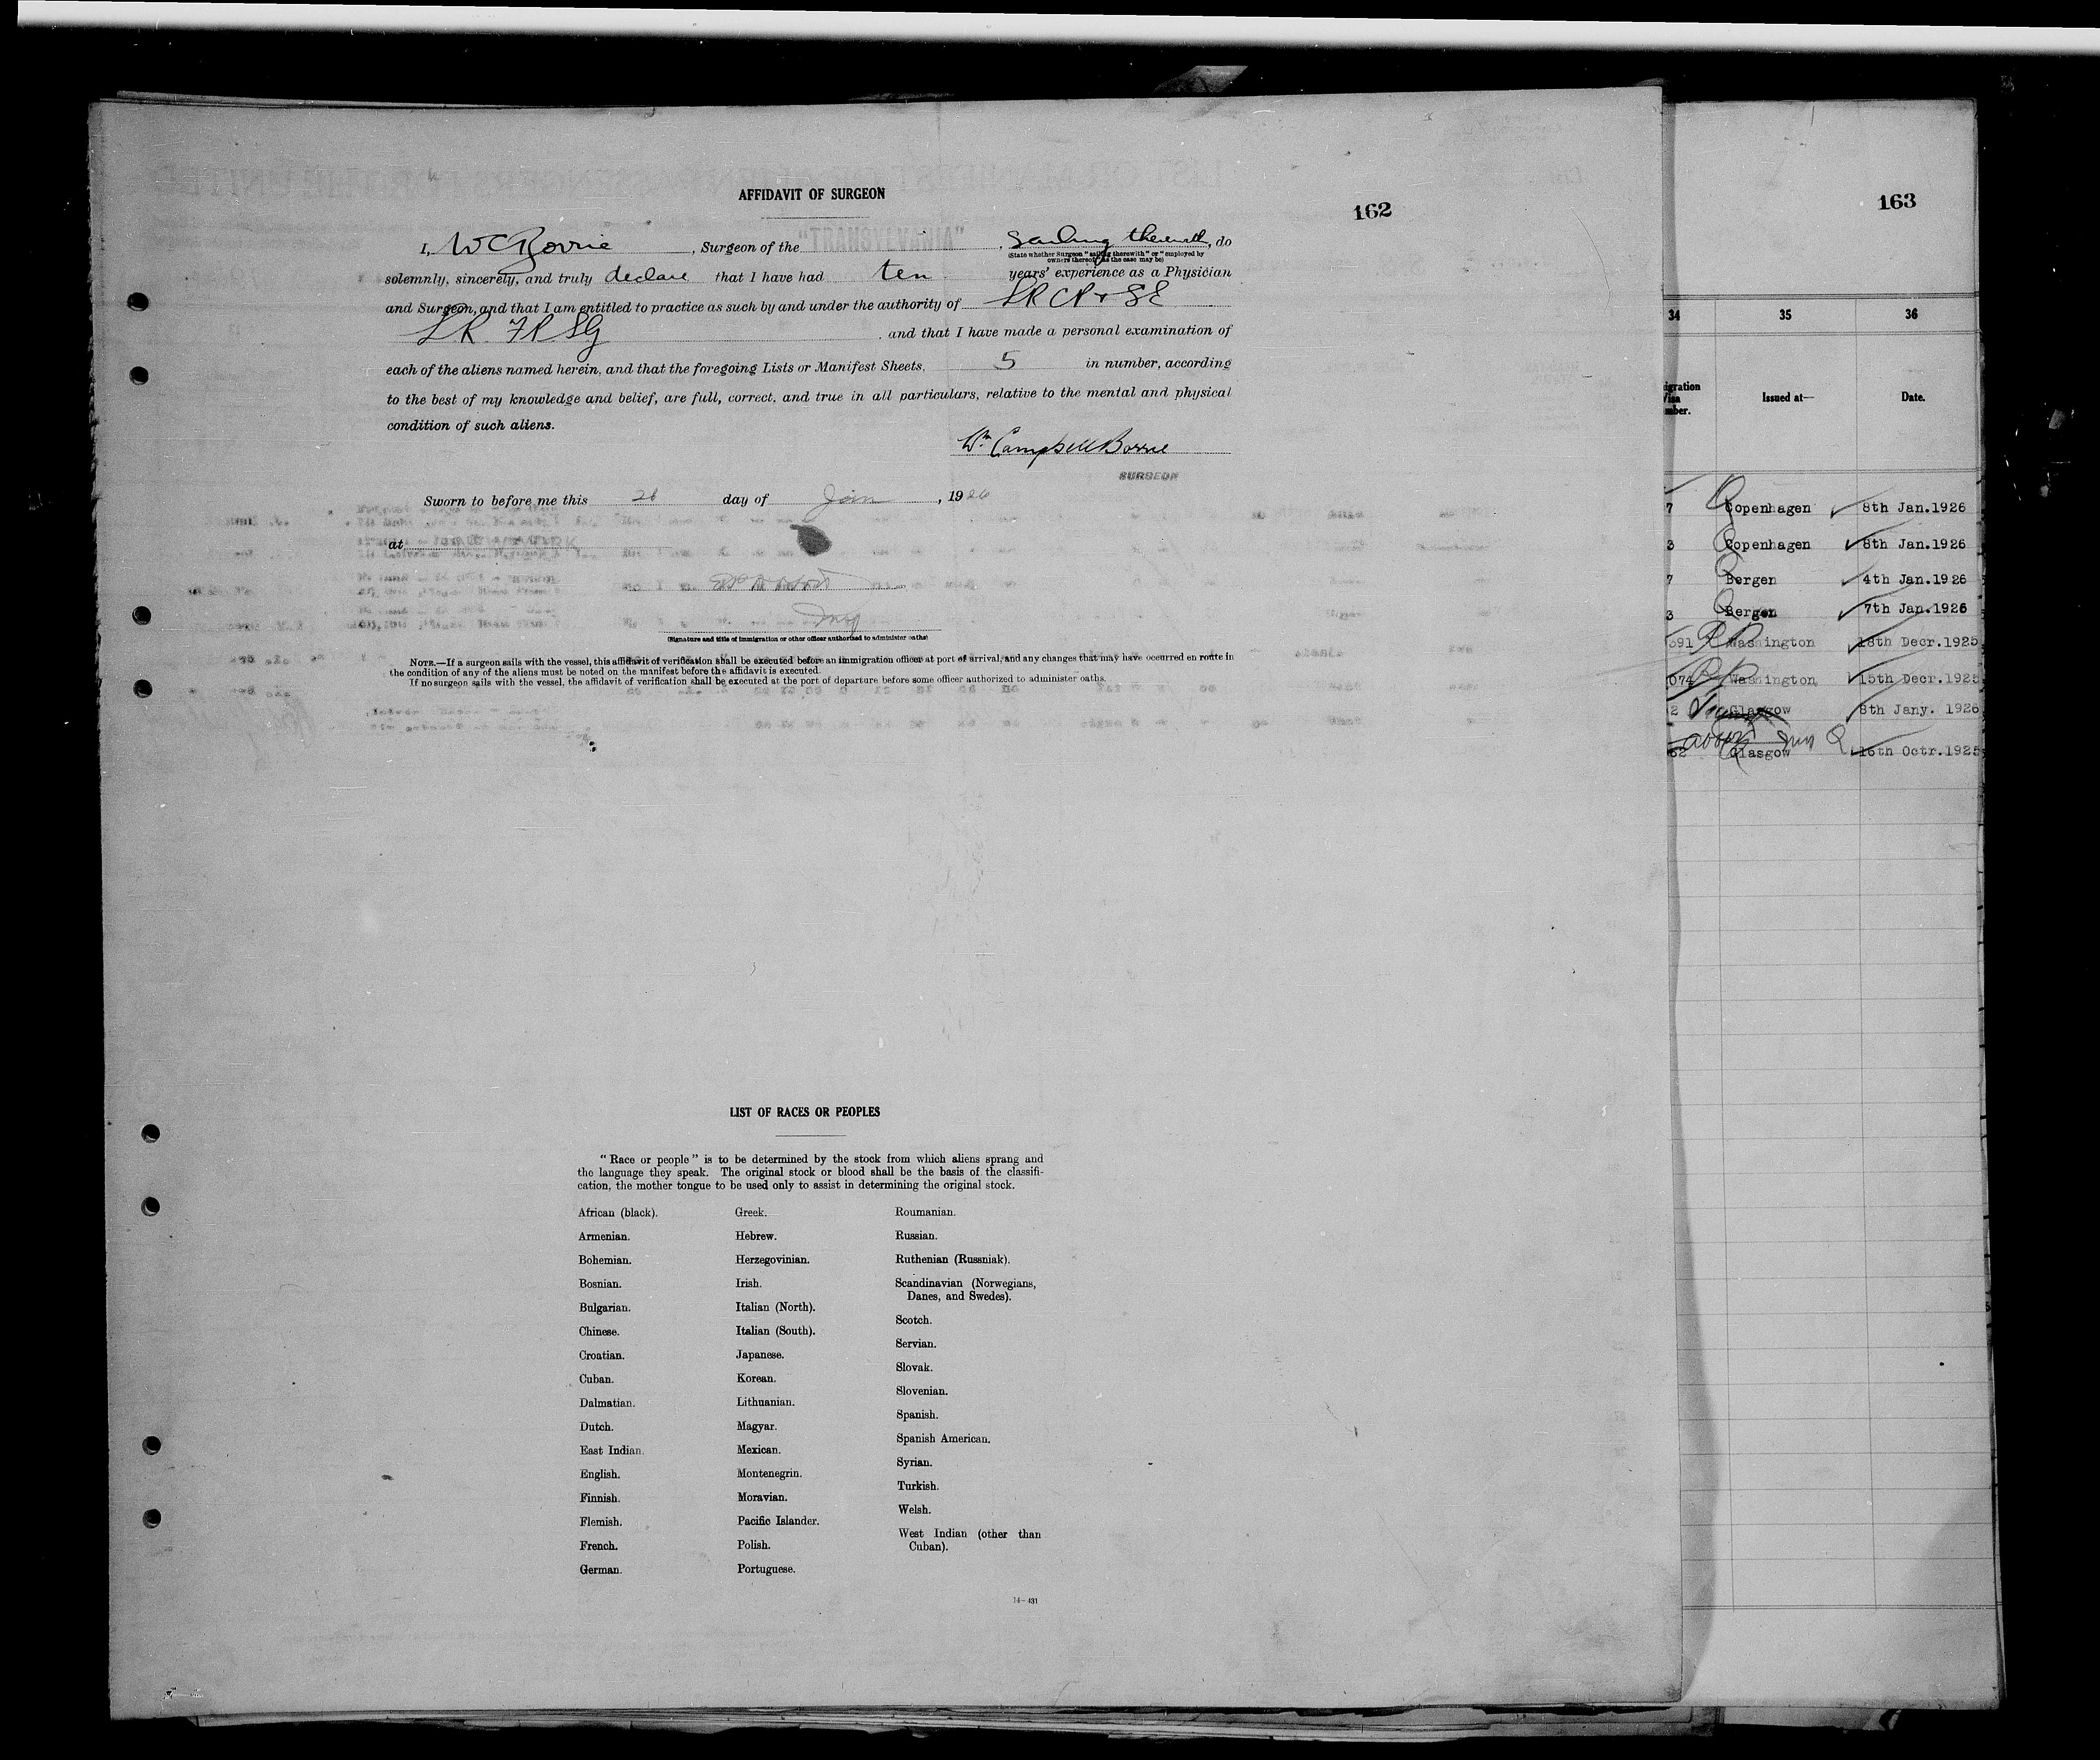 AFFIDAVIT OF SURGEON
162
I, WC Borrie, Surgeon of the "TRANSYLVANIA", Sailing therewith, do
(State whether Surgeon "sailing therewith" or "employed by
owners thereof," as the case may be)
solemnly, sincerely, and truly declare that I have had ten years' experience as a Physician
and Surgeon, and that I am entitled to practice as such by and under the authority of LRCP & SE
L.R. F.P.SG and that I have made a personal examination of
each of the aliens named herein, and that the foregoing Lists or Manifest Sheets, 5 in number, according
to the best of my knowledge and belief, are full, correct, and true in all particulars, relative to the mental and physical
condition of such aliens.
Wm Campbell Borrie
SURGEON
Sworn to before me this 26 day of Jan, 1926
at
(Signature and title of immigration or other officer authorized to administer oaths)
NOTE.—If a surgeon sails with the vessel, this affidavit of verification shall be executed before an immigration officer at port of arrival, and any changes that may have occurred en route in
the condition of any of the aliens must be noted on the manifest before the affidavit is executed.
If no surgeon sails with the vessel, the affidavit of verification shall be executed at the port of departure before some officer authorized to administer oaths.
LIST OF RACES OR PEOPLES
"Race or people" is to be determined by the stock from which aliens sprang and
the language they speak. The original stock or blood shall be the basis of the classifi-
cation, the mother tongue to be used only to assist in determining the original stock.
African (black).
Armenian.
Bohemian.
Bosnian.
Bulgarian.
Chinese.
Croatian.
Cuban.
Dalmatian.
Dutch.
East Indian.
English.
Finnish.
Flemish.
French.
German.
Greek.
Hebrew.
Herzegovinian.
Irish.
Italian (North).
Italian (South).
Japanese.
Korean.
Lithuanian.
Magyar.
Mexican.
Montenegrin.
Moravian.
Pacific Islander.
Polish.
Portuguese.
Roumanian.
Russian.
Ruthenian (Russniak).
Scandinavian (Norwegians,
Danes, and Swedes).
Scotch.
Servian.
Slovak.
Slovenian.
Spanish.
Spanish American.
Syrian.
Turkish.
Welsh.
West Indian (other than
Cuban).
14-431
163
34 35 36
Issued at— Date.
7 Copenhagen 8th Jan.1926
3 Copenhagen 8th Jan.1926
7 Bergen 4th Jan.1926
3 Bergen 7th Jan.1926
591 Washington 18th Decr.1925
074 Washington 15th Decr.1925
2 Glasgow 8th Jany. 1926
62 Glasgow 16th Octr.1925